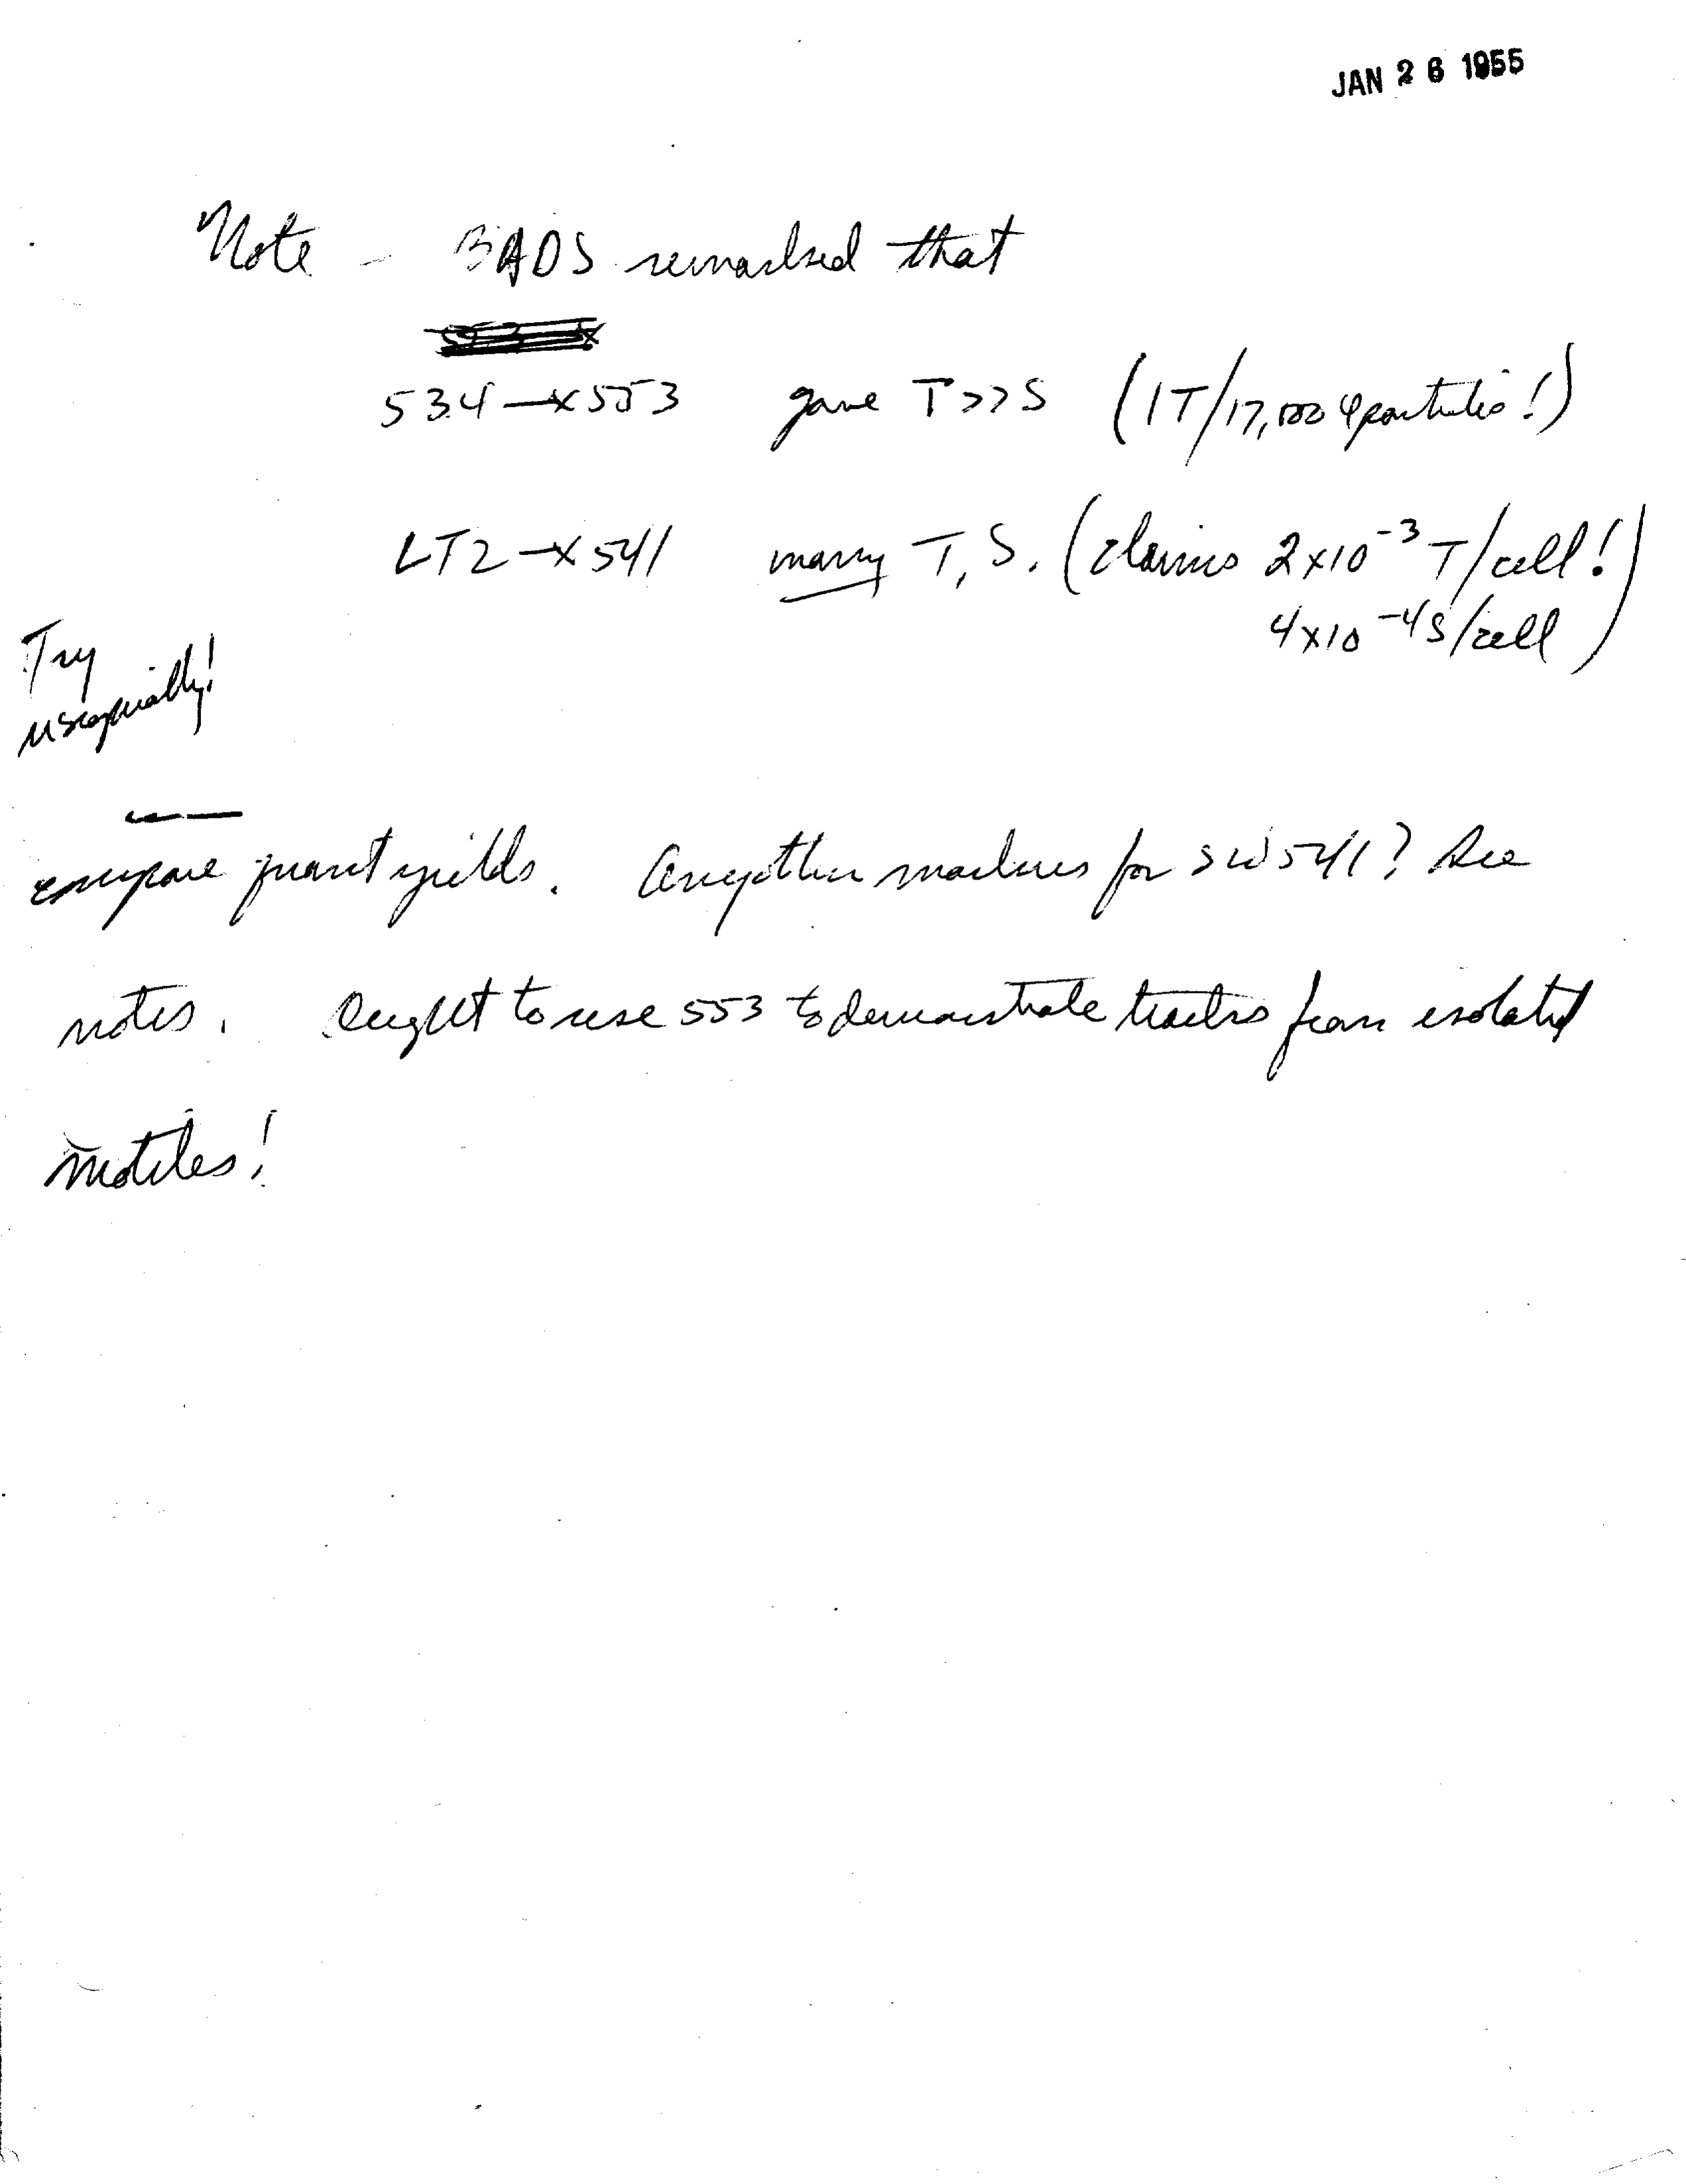 JAN 26 1955
Note - BADS remarked that
534 —x 553 gave T>>S (1T/17,000 φ particles!)
LT2 —x 541 many T, S. (claims 2x10⁻³ T/cell!
4x10⁻⁴ S/cell)
Try
compare quant yields. Any other markers for SW541? See
notes. Ought to use 553 to demonstrate trails from isolated
motiles!